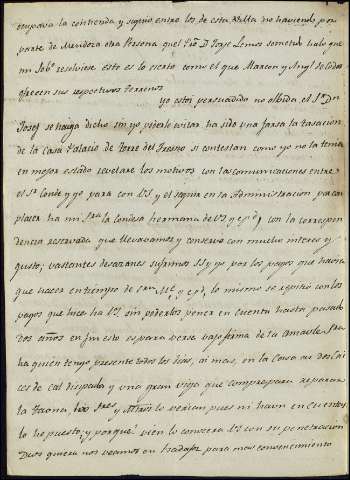 ocupava la contienda y siguio entre los de esta Villa no haviendo por
parte de Mendoza otra Persona que el Sor. Dn. Jose Lemus
mi Sobo. resolviese esto es lo sierto como el que Marcon y Angl. de
ofrecen sus respectivos terrenos
yo estoi persuadido no olbida el Sr. Dn.
Josef se haiga dicho sin yo poderlo evitar ha sido una farsa la tasacion
de la Casa Palacio de Torre del Fresno si contestan como yo no la tenia
en mejor estado revelare los motivos con las comunicaciones entre
el Sr. Conde y yo para con VS y el seguir en la Administracion por con
placer ha mi Sra. la Condesa hermana de VS con la correspon
dencia reservada que llevavamos y conservo con mucho interes y
gusto; vastantes desazones sufrimos VS y yo por los pagos que havia
que hacer en tiempo de lo mismo se repitio con los
pagos que hice ha VS. sin poderlos poner en cuenta hasta pasado
dos años en fin esto es para verse bajo firma de tu amable Sra
ha quien tengo presente todos los dias, ai mas, en la Casa
de cal y una gran viga que compre para reparar
la y otros lo serian pues ni haun en cuenta
lo he puesto; y porqué? vien lo conosera VS con su penetracion
Dios quiera nos veamos en Badajoz para mas convencimiento